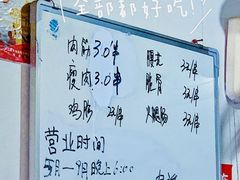 全部都好吃!!
肉筋3.0串 腰花 3元/串
瘦肉3.0串 脆骨 3元/串
鸡肠 2元/串 火腿肠 3元/串
营业时间
5月-9月晚上6:00